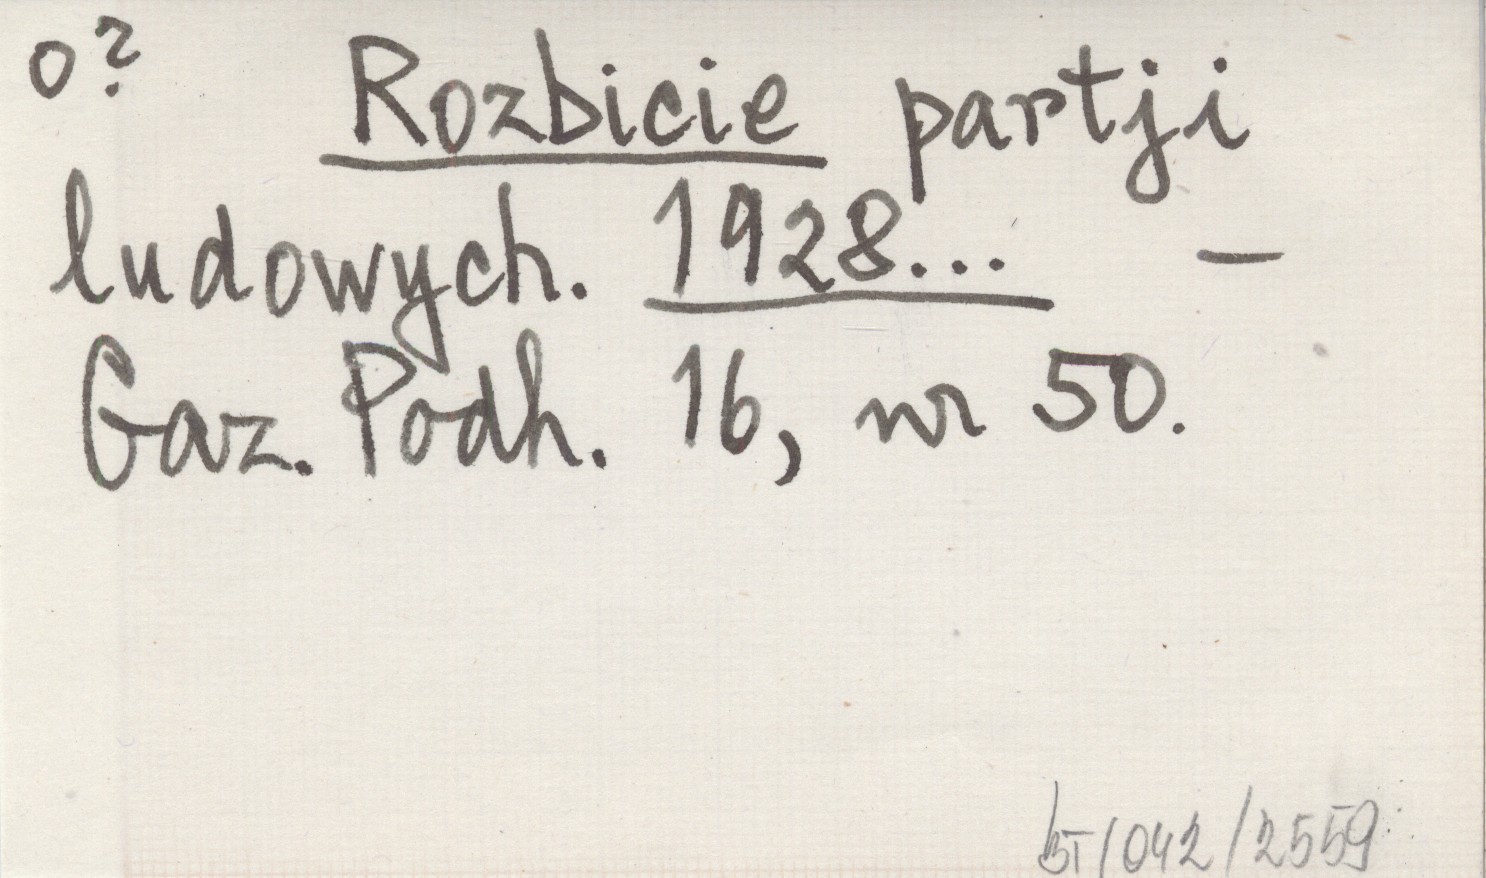 o?
Rozbicie partji
ludowych. 1928... —
Gaz. Podh. 16, nr 50.
BT/042/2559